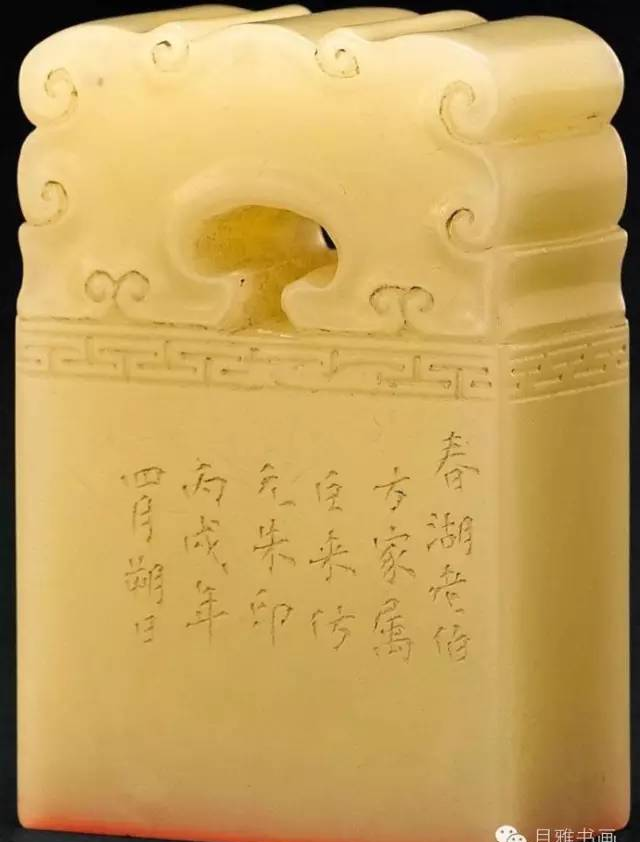 春湖老伯
方家属
巨来仿
元朱印
丙戌年
四月朔日
月雅书画